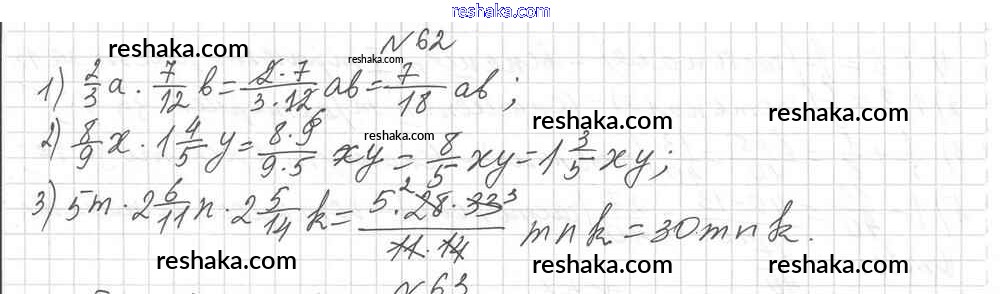 reshaka.com
№62
reshaka.com
reshaka.com
1) 2/3 a · 7/12 b = 2·7/3·12 ab = 7/18 ab;
reshaka.com
reshaka.com
reshaka.com
2) 8/9 x · 1 4/5 y = 8·9/9·5 xy = 8/5 xy = 1 3/5 xy;
3) 5m · 2 6/11 n · 2 5/14 k = 5·28²·33³/11·14 mnk = 30mnk.
reshaka.com
reshaka.com
reshaka.com
№63